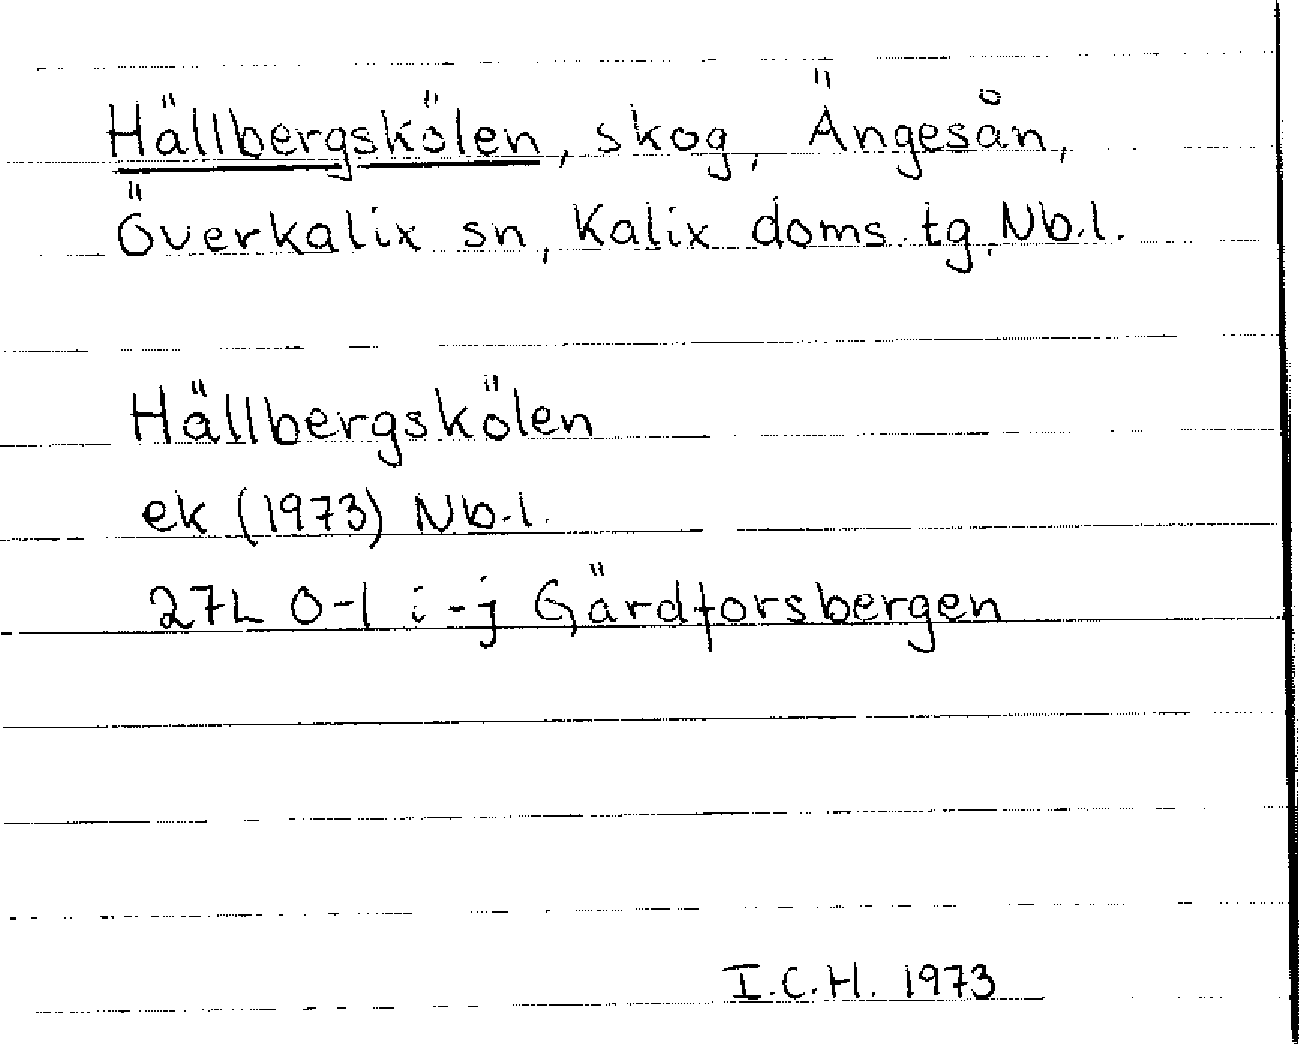 Hällbergskölen, skog, Ängesån,
Överkalix sn, Kalix doms. tg, Nb.l.
Hällbergskölen
ek (1973) Nb.l.
27L 0-1 i-j Gärdforsbergen
I.C.H. 1973